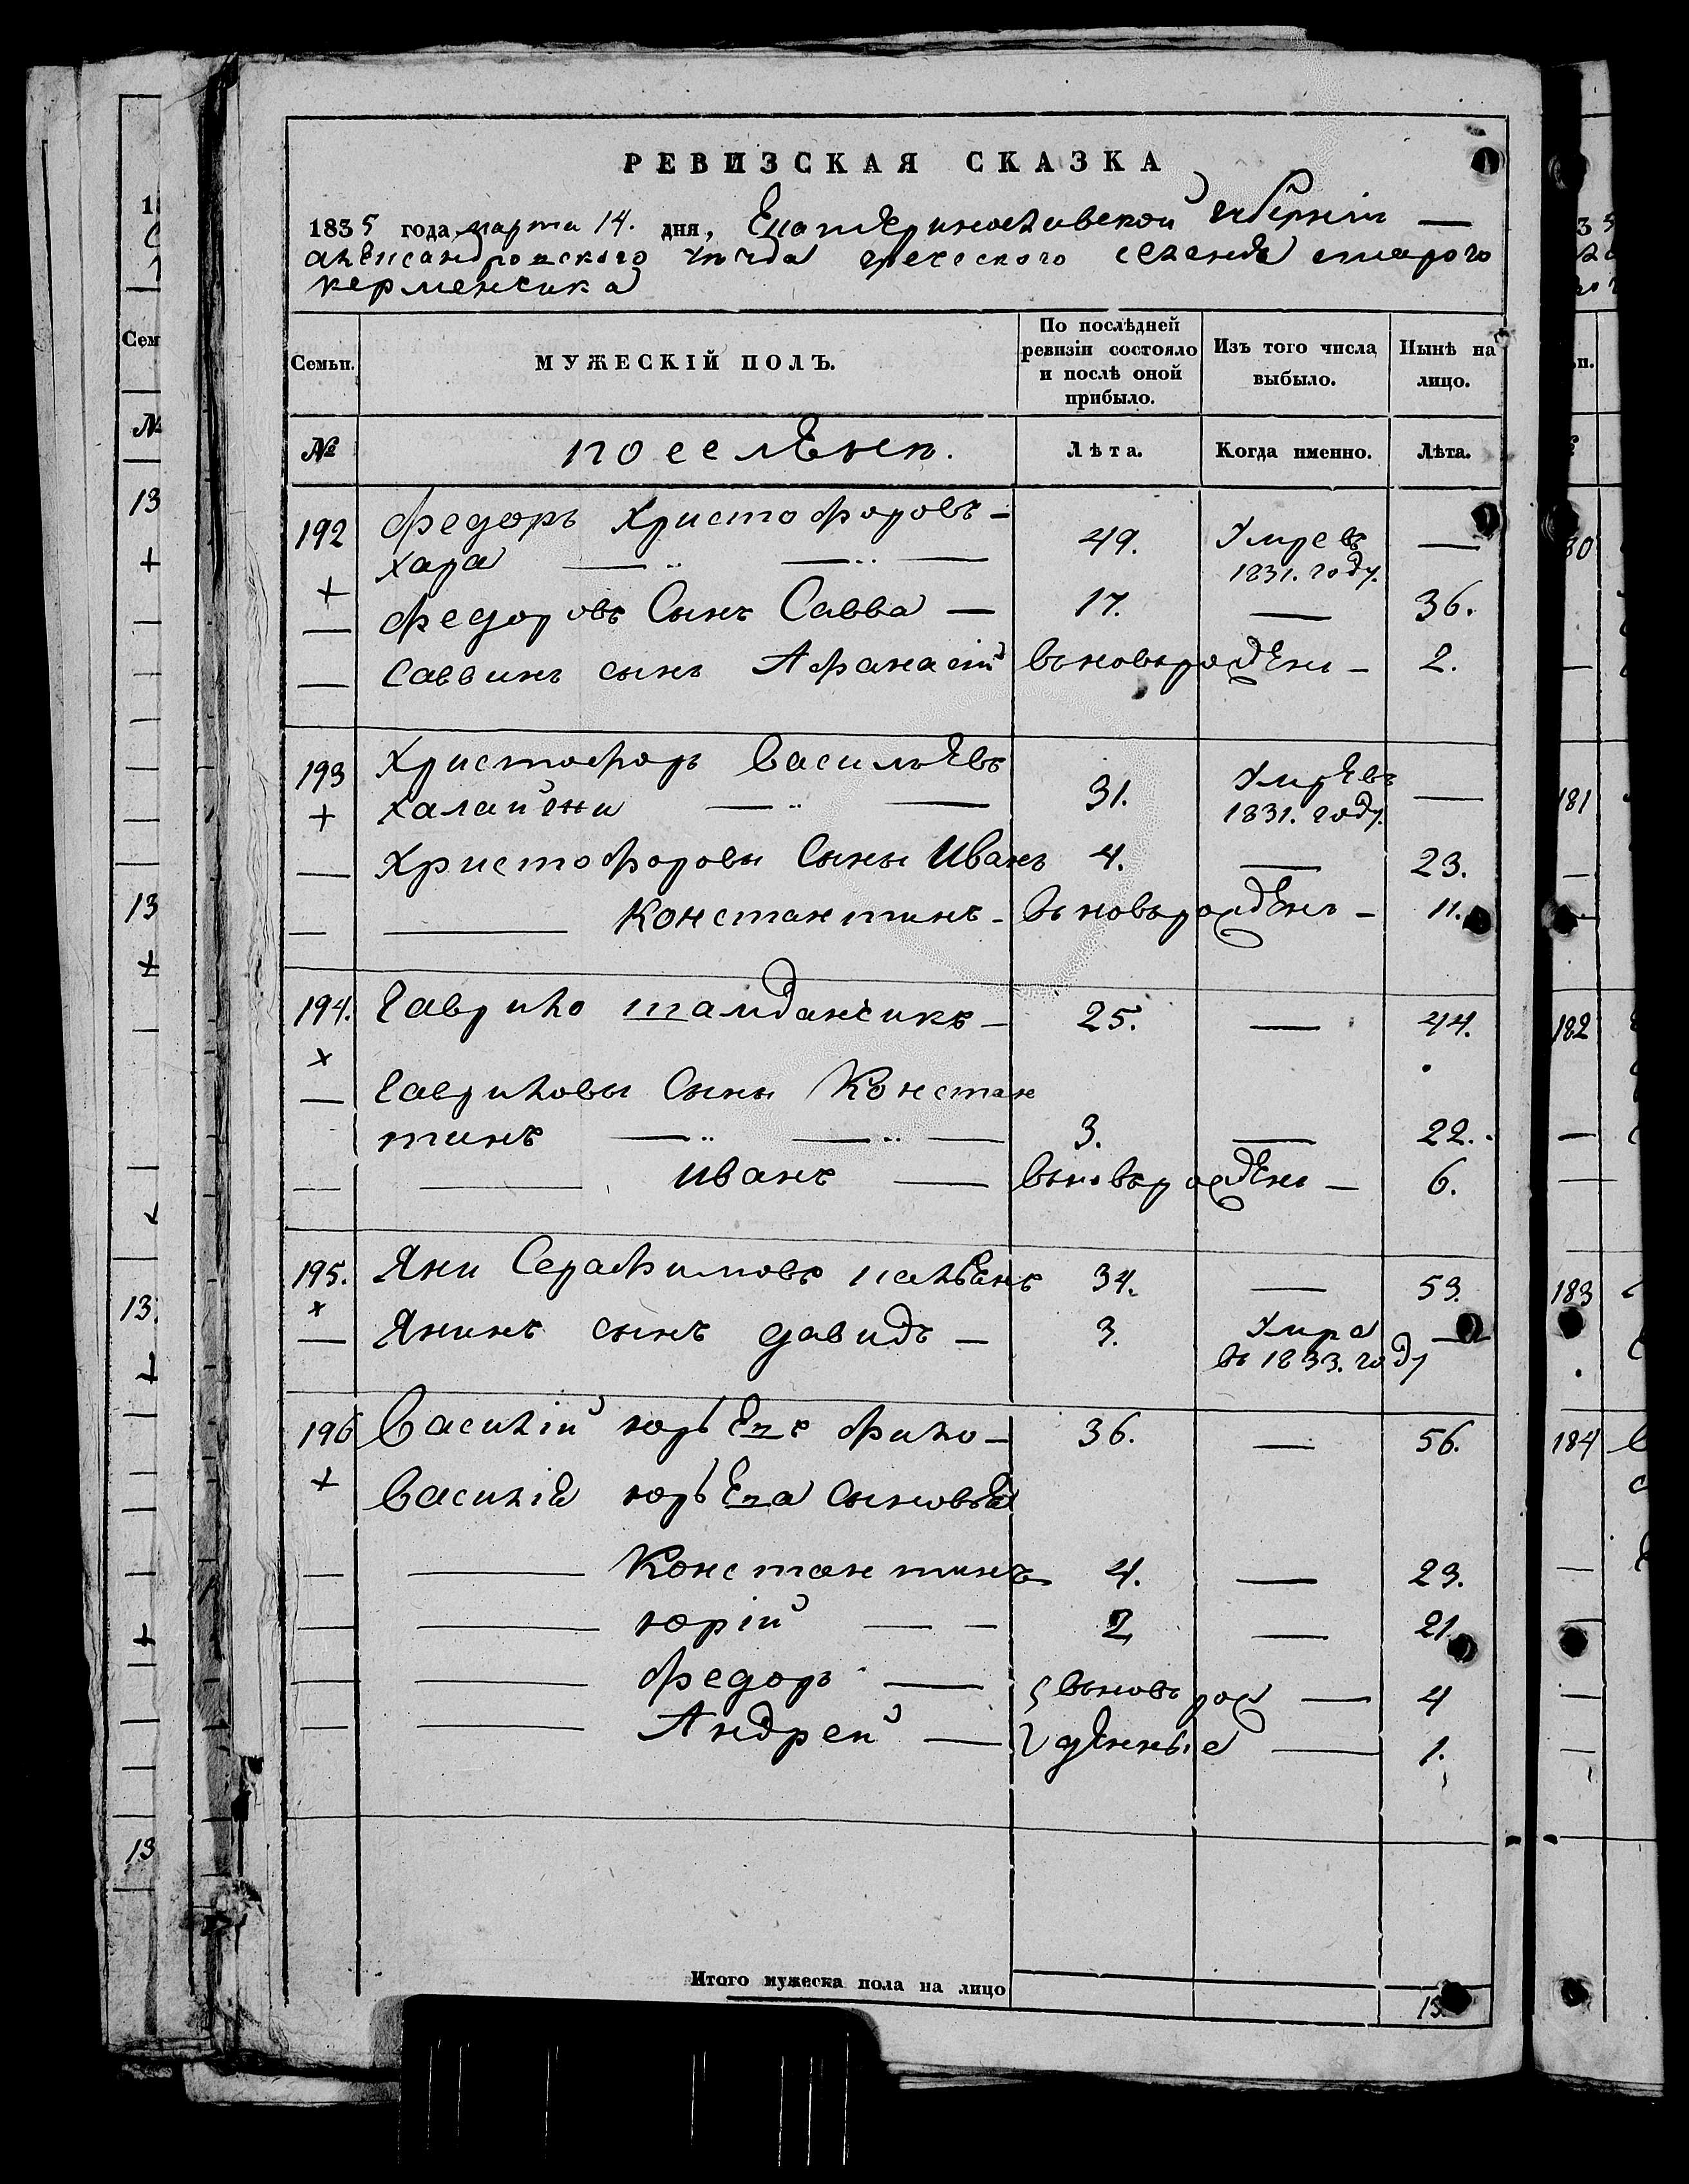 РЕВИЗСКАЯ СКАЗКА
1835 года марта 14. дня, Екатеринославской губернии —
александровского уезда греческого селения старого
керменчика
Семьи. МУЖЕСКІЙ ПОЛЪ. По послѣдней ревизіи состояло и послѣ оной прибыло. Изъ того числа выбыло. Нынѣ на лицо.
№ поселѣнн. Лѣта. Когда именно. Лѣта.
192 Федоръ Христофоровъ —
хара 49. Умре въ 1831. году. —
+
— Федоровъ Сынъ Савва — 17. — 36.
— Саввинъ сынъ Афанасій вновьрожденъ — 2.
193 Христофоръ Васильевъ
+ халайчи 31. Умре въ 1831. году. —
— Христофоровы Сыны Иванъ 4. — 23.
— Константинъ — вновьрожденъ — 11.
194. Гаврило тамданчикъ — 25. — 44.
+
— Гавриловы Сыны Констан
тинъ 3. — 22.
— Иванъ — вновьрожденъ — 6.
195. Яни Серафимовъ 34. — 53.
+
— Янинъ сынъ давидъ — 3. Умре въ 1833. году —
196 Василій юрьевъ Фило — 36. — 56.
+ Василія юрьева сыновья
— Константинъ 4. — 23.
— юрій — 2 — 21.
— Федоръ — вновь рож — 4
— Андрей — денные — 1.
Итого мужеска пола на лицо 13.
13
+
13
+
13.
+
+
13
80
181
182
183
184